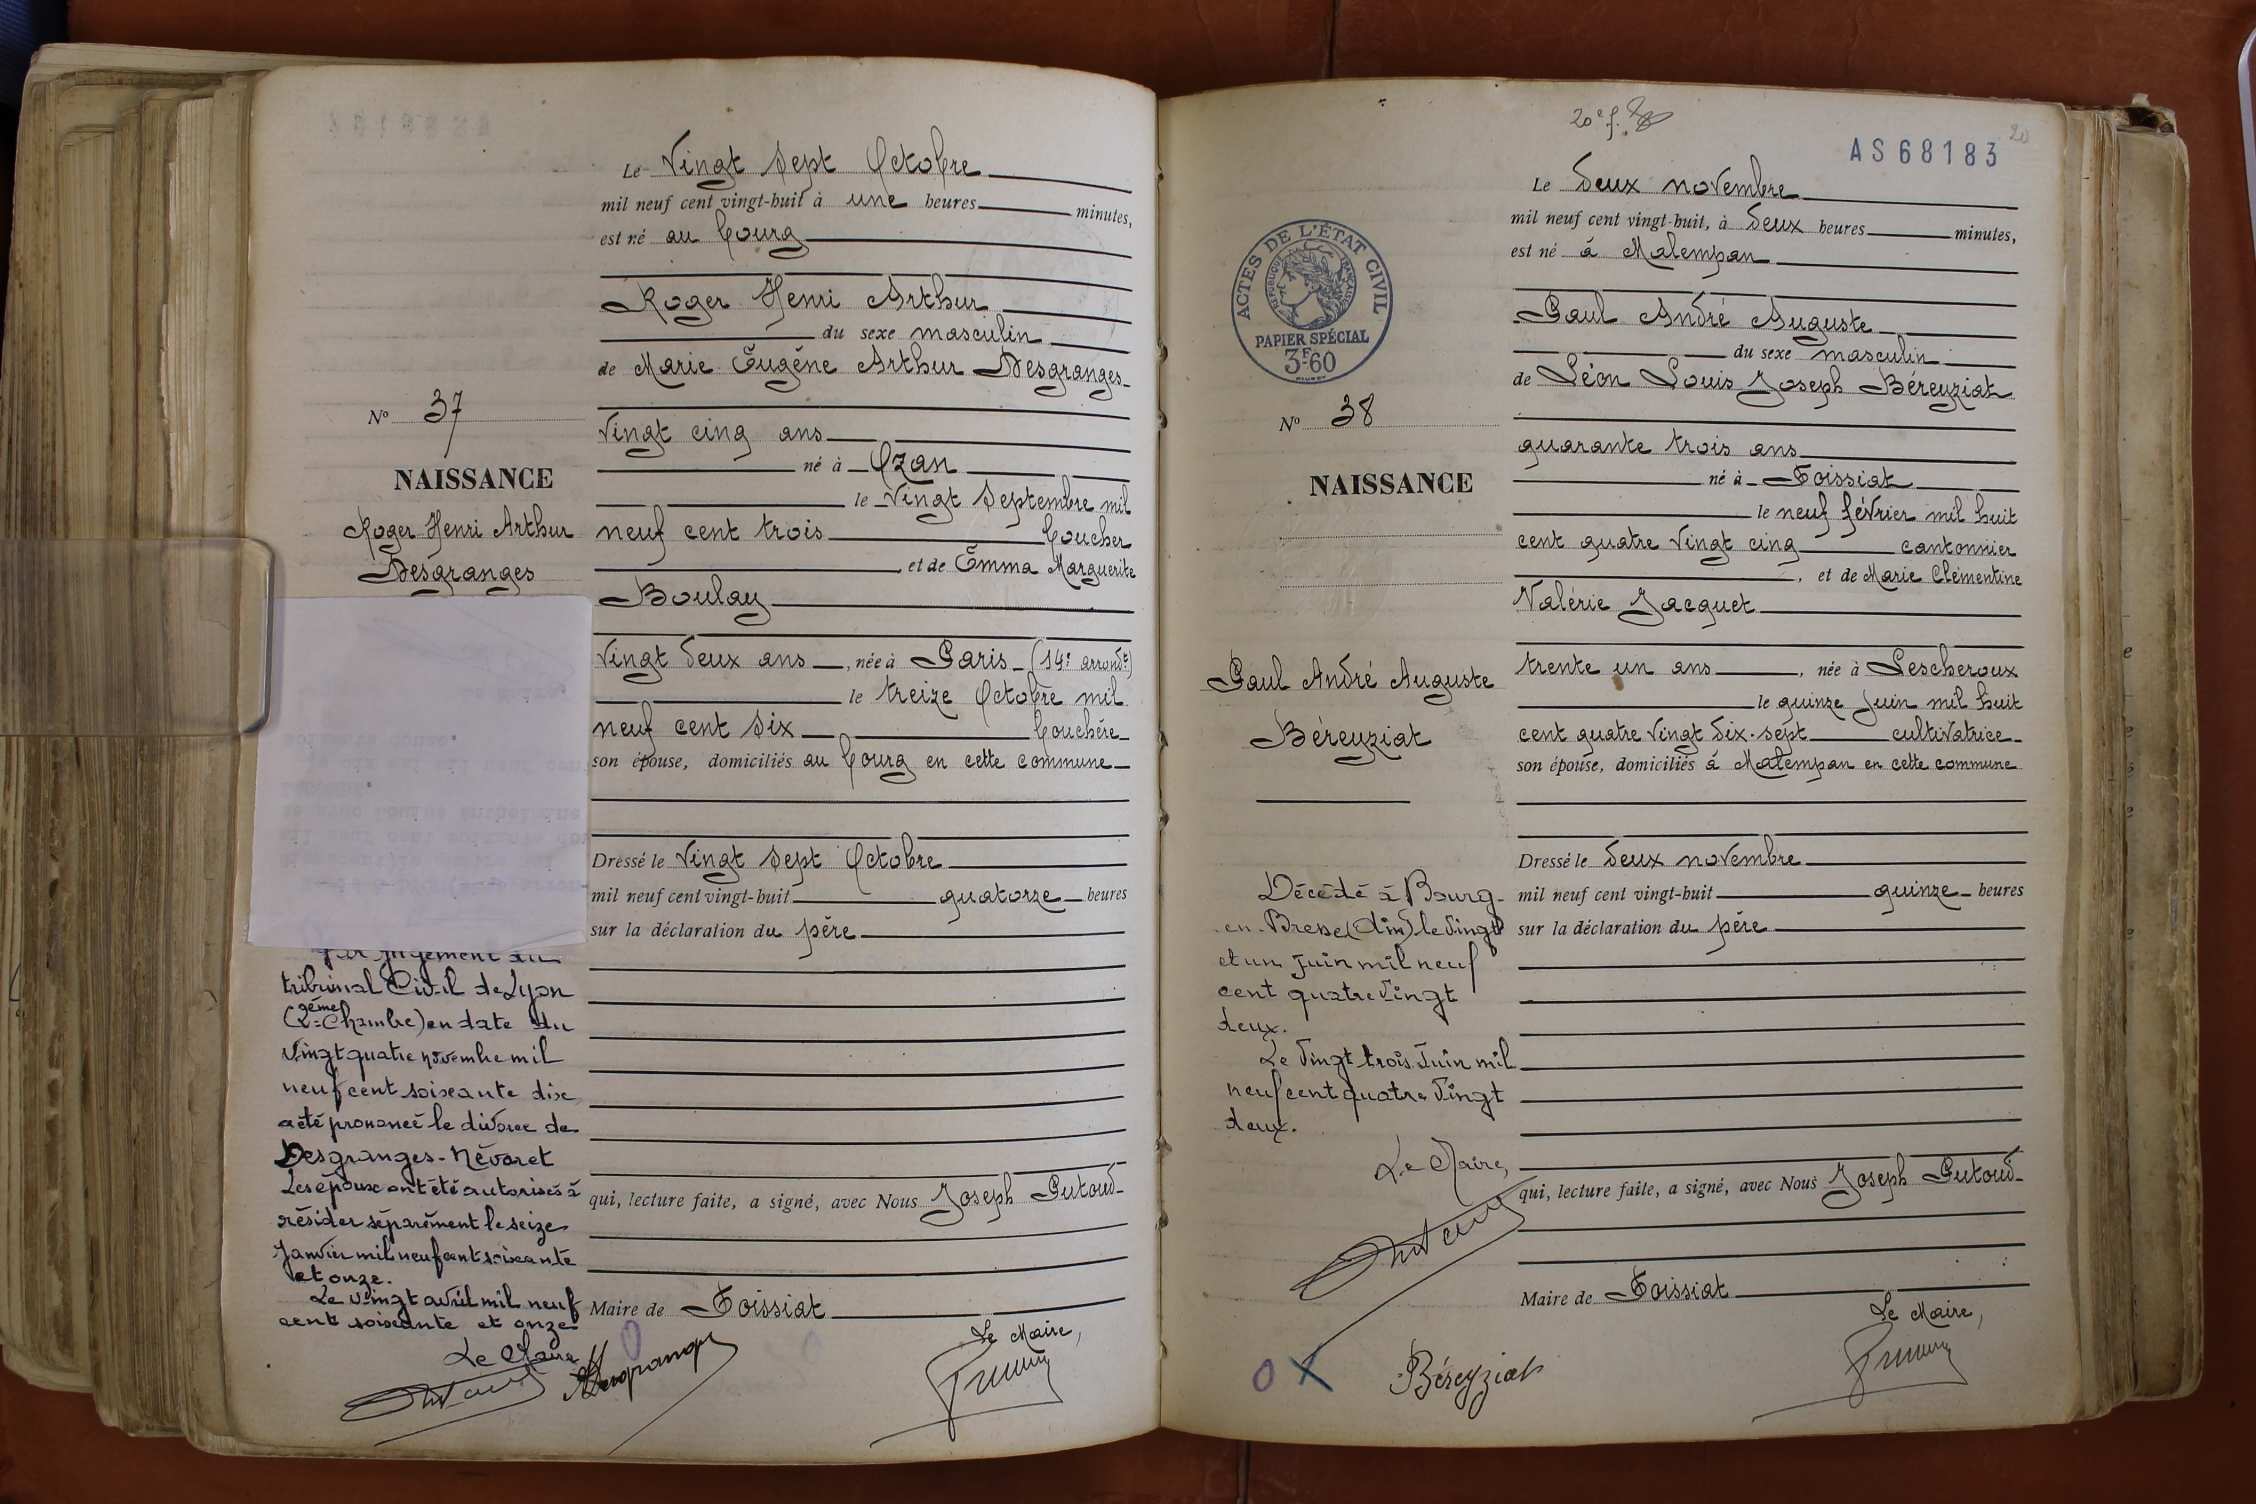 Le Vingt Sept Octobre
mil neuf cent vingt-huit à une heures minutes,
est né au bourg
Roger Henri Arthur
du sexe masculin
de Marie Eugène Arthur Desgranges
No 37
Vingt cinq ans
né à Ozan
NAISSANCE
le Vingt Septembre mil
Roger Henri Arthur
Desgranges
neuf cent trois boucher
et de Emma Marguerite
Boulay
Vingt deux ans, née à Paris (14e arrondt)
le treize Octobre mil
neuf cent six bouchère
son épouse, domiciliés au bourg en cette commune
Dressé le Vingt sept Octobre
mil neuf cent vingt-huit quatorze heures
sur la déclaration du père
Par jugement du
tribunal Civil de Lyon
(2ème Chambre) en date du
vingt quatre novembre mil
neuf cent soixante dix
a été prononcé le divorce de
Desgranges - Névoret
Les époux ont été autorisés à
résider séparément le seize
Janvier mil neuf cent soixante
et onze.
Le vingt avril mil neuf
cent soixante et onze
Le Maire
qui, lecture faite, a signé, avec Nous Joseph Putoud
Maire de Foissiat
Le Maire,
Desgranges
20e f.
20
AS 68183
Le deux novembre
mil neuf cent vingt-huit, à deux heures minutes,
est né à Malempan
ACTES DE L'ÉTAT CIVIL
RÉPUBLIQUE FRANÇAISE
PAPIER SPÉCIAL
3F60
Paul André Auguste
du sexe masculin
de Léon Louis Joseph Béreyziat
No 38
quarante trois ans
né à Foissiat
NAISSANCE
le neuf février mil huit
cent quatre vingt cinq cantonnier
, et de Marie Clémentine
Valérie Jacquet
Paul André Auguste
Béreyziat
trente un ans, née à Lescheroux
le quinze Juin mil huit
cent quatre vingt dix-sept cultivatrice
son épouse, domiciliés à Malempan en cette commune
Dressé le deux novembre
mil neuf cent vingt-huit quinze heures
sur la déclaration du père
Décédé à Bourg-
en-Bresse (Ain) le vingt
et un Juin mil neuf
cent quatre vingt
deux.
Le vingt trois Juin mil
neuf cent quatre vingt
deux.
Le Maire,
qui, lecture faite, a signé, avec Nous Joseph Putoud
Maire de Foissiat
Le Maire,
Béreyziat